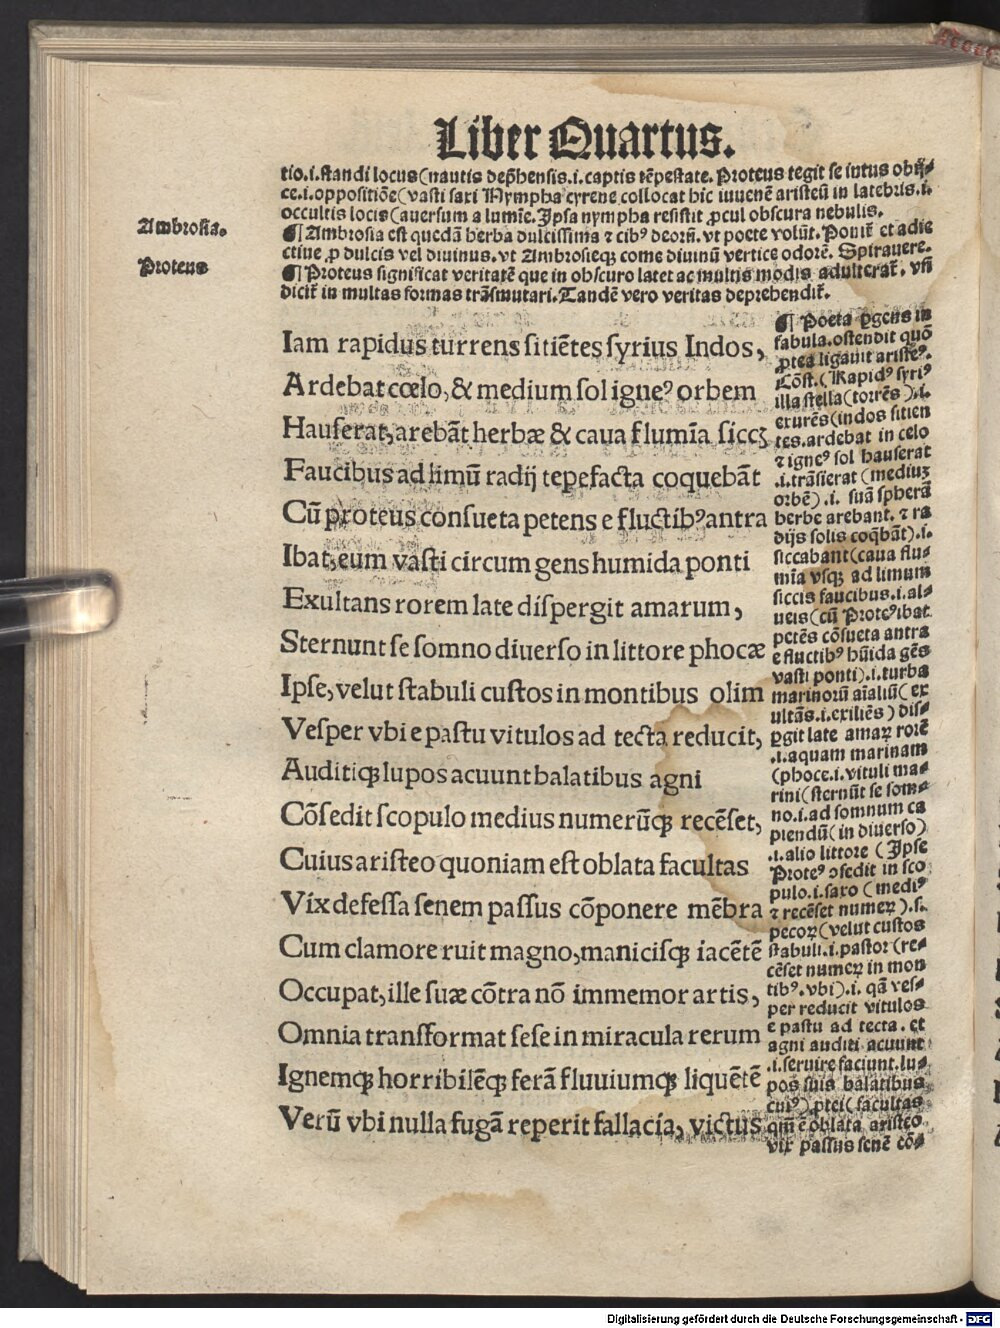 Liber Quartus.
tio.i.standi locus(nautis dep̃hensis.i.captis tẽpestate. Proteus tegit se intus obij⸗
ce.i.oppositiõe(vasti saxi Nympha cyrene collocat hic iuuenẽ aristeũ in latebris.i.
occultis locis(auersum a lumĩe. Ipsa nympha resistit ꝓcul obscura nebulis.
Ambrosia.
¶ Ambrosia est quedã herba dulcissima ⁊ cibꝰ deorũ. vt poete volũt. Ponit̃ et adie
ctiue ꝓ dulcis vel diuinus. vt Ambrosieqꝫ come diuinũ vertice odorẽ. Spirauere.
Proteus
¶ Proteus significat veritatẽ que in obscuro latet ac multis modis adulterat̃. vñ
dicit̃ in multas formas trãsmutari. Tandẽ vero veritas deprehendit̃.
Iam rapidus turrens sitiẽtes syrius Indos,
Ardebat cœlo, & medium sol igneꝰ orbem
Hauserat, arebãt herbæ & caua flumĩa siccꝫ
Faucibus ad limũ radij tepefacta coquebãt
Cũ proteus consueta petens e fluctibꝰ antra
Ibat, eum vasti circum gens humida ponti
Exultans rorem late dispergit amarum,
Sternunt se somno diuerso in littore phocæ
Ipse, velut stabuli custos in montibus olim
Vesper vbi e pastu vitulos ad tecta reducit,
Auditiqꝫ lupos acuunt balatibus agni
Cõsedit scopulo medius numerũqꝫ recẽset,
Cuius aristeo quoniam est oblata facultas
Vix defessa senem passus cõponere mẽbra
Cum clamore ruit magno, manicisqꝫ iacẽtẽ
Occupat, ille suæ cõtra nõ immemor artis,
Omnia transformat sese in miracula rerum
Ignemqꝫ horribilẽqꝫ ferã fluuiumqꝫ liquẽtẽ
Verũ vbi nulla fugã reperit fallacia, victus
¶ Poeta ꝑgens in
fabula. ostendit quõ
ꝓtea ligauit aristeꝰ.
Cõst. (Rapidꝰ syriꝰ
illa stella(torrẽs).i.
exurẽs(indos sitien
tes. ardebat in celo
⁊ igneꝰ sol hauserat
.i.trãsierat (mediuꝫ
orbẽ).i. suã spherã
herbe arebant. ⁊ ra
dijs solis coq̃bãt).i.
siccabant(caua flu⸗
mĩa vsqꝫ ad limum
siccis faucibus.i.al⸗
ueis(cũ Proteꝰ ibat
petẽs cõsueta antra
e fluctibꝰ hũida gẽs
vasti ponti).i.turba
marinorũ aĩaliũ(ex
ultãs.i.exiliẽs) dis⸗
ꝑgit late amaꝝ rorẽ
.i.aquam marinam
(phoce.i.vituli ma⸗
rini(sternũt se som⸗
no.i.ad somnum ca
piendũ(in diuerso)
.i.alio littore (Ipse
Proteꝰ ꝯsedit in sco
pulo.i.saxo (mediꝰ
⁊ recẽset numeꝝ).s.
pecoꝝ(velut custos
stabuli.i.pastor(re⸗
cẽset numeꝝ in mon
tibꝰ.vbi).i. qñ ves⸗
per reducit vitulos
e pastu ad tecta. et
agni auditi acuunt
.i.seruire faciunt.lu⸗
pos suis balatibus
cuiꝰ).ptei(facultas
qm̃ ẽ oblata aristeo
vix passus senẽ cõ⸗
Digitalisierung gefördert durch die Deutsche Forschungsgemeinschaft - DFG